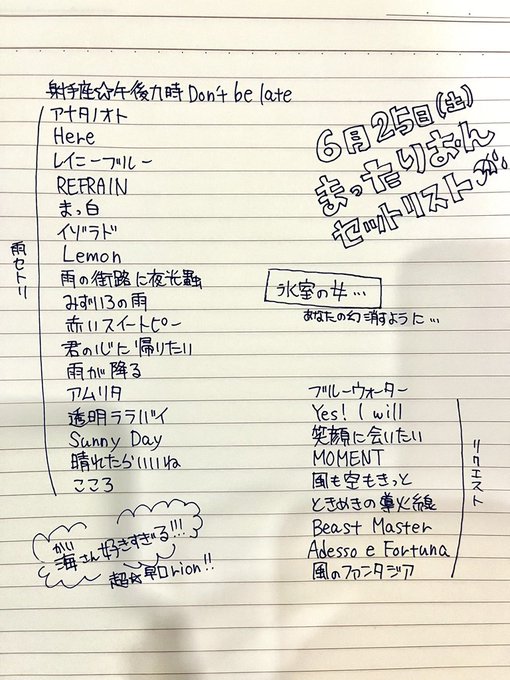 射手座☆午後九時 Don't be late
アナタノオト
Here
レイニーブルー
REFRAIN
まっ白
イゾラド
Lemon
雨の街路に夜光蟲
みずいろの雨
赤いスイートピー
君の心に帰りたい
雨が降る
アムリタ
透明ララバイ
Sunny Day
晴れたらいいね
こころ
雨セトリ
6月25日(土)
まったりおん
セットリスト
氷室の女…
あなたの幻消すように…
ブルーウォーター
Yes! I will
笑顔に会いたい
MOMENT
風も空もきっと
ときめきの導火線
Beast Master
Adesso e Fortuna
風のファンタジア
リクエスト
かい
海さん好きすぎる!!!
超☆早口rion!!